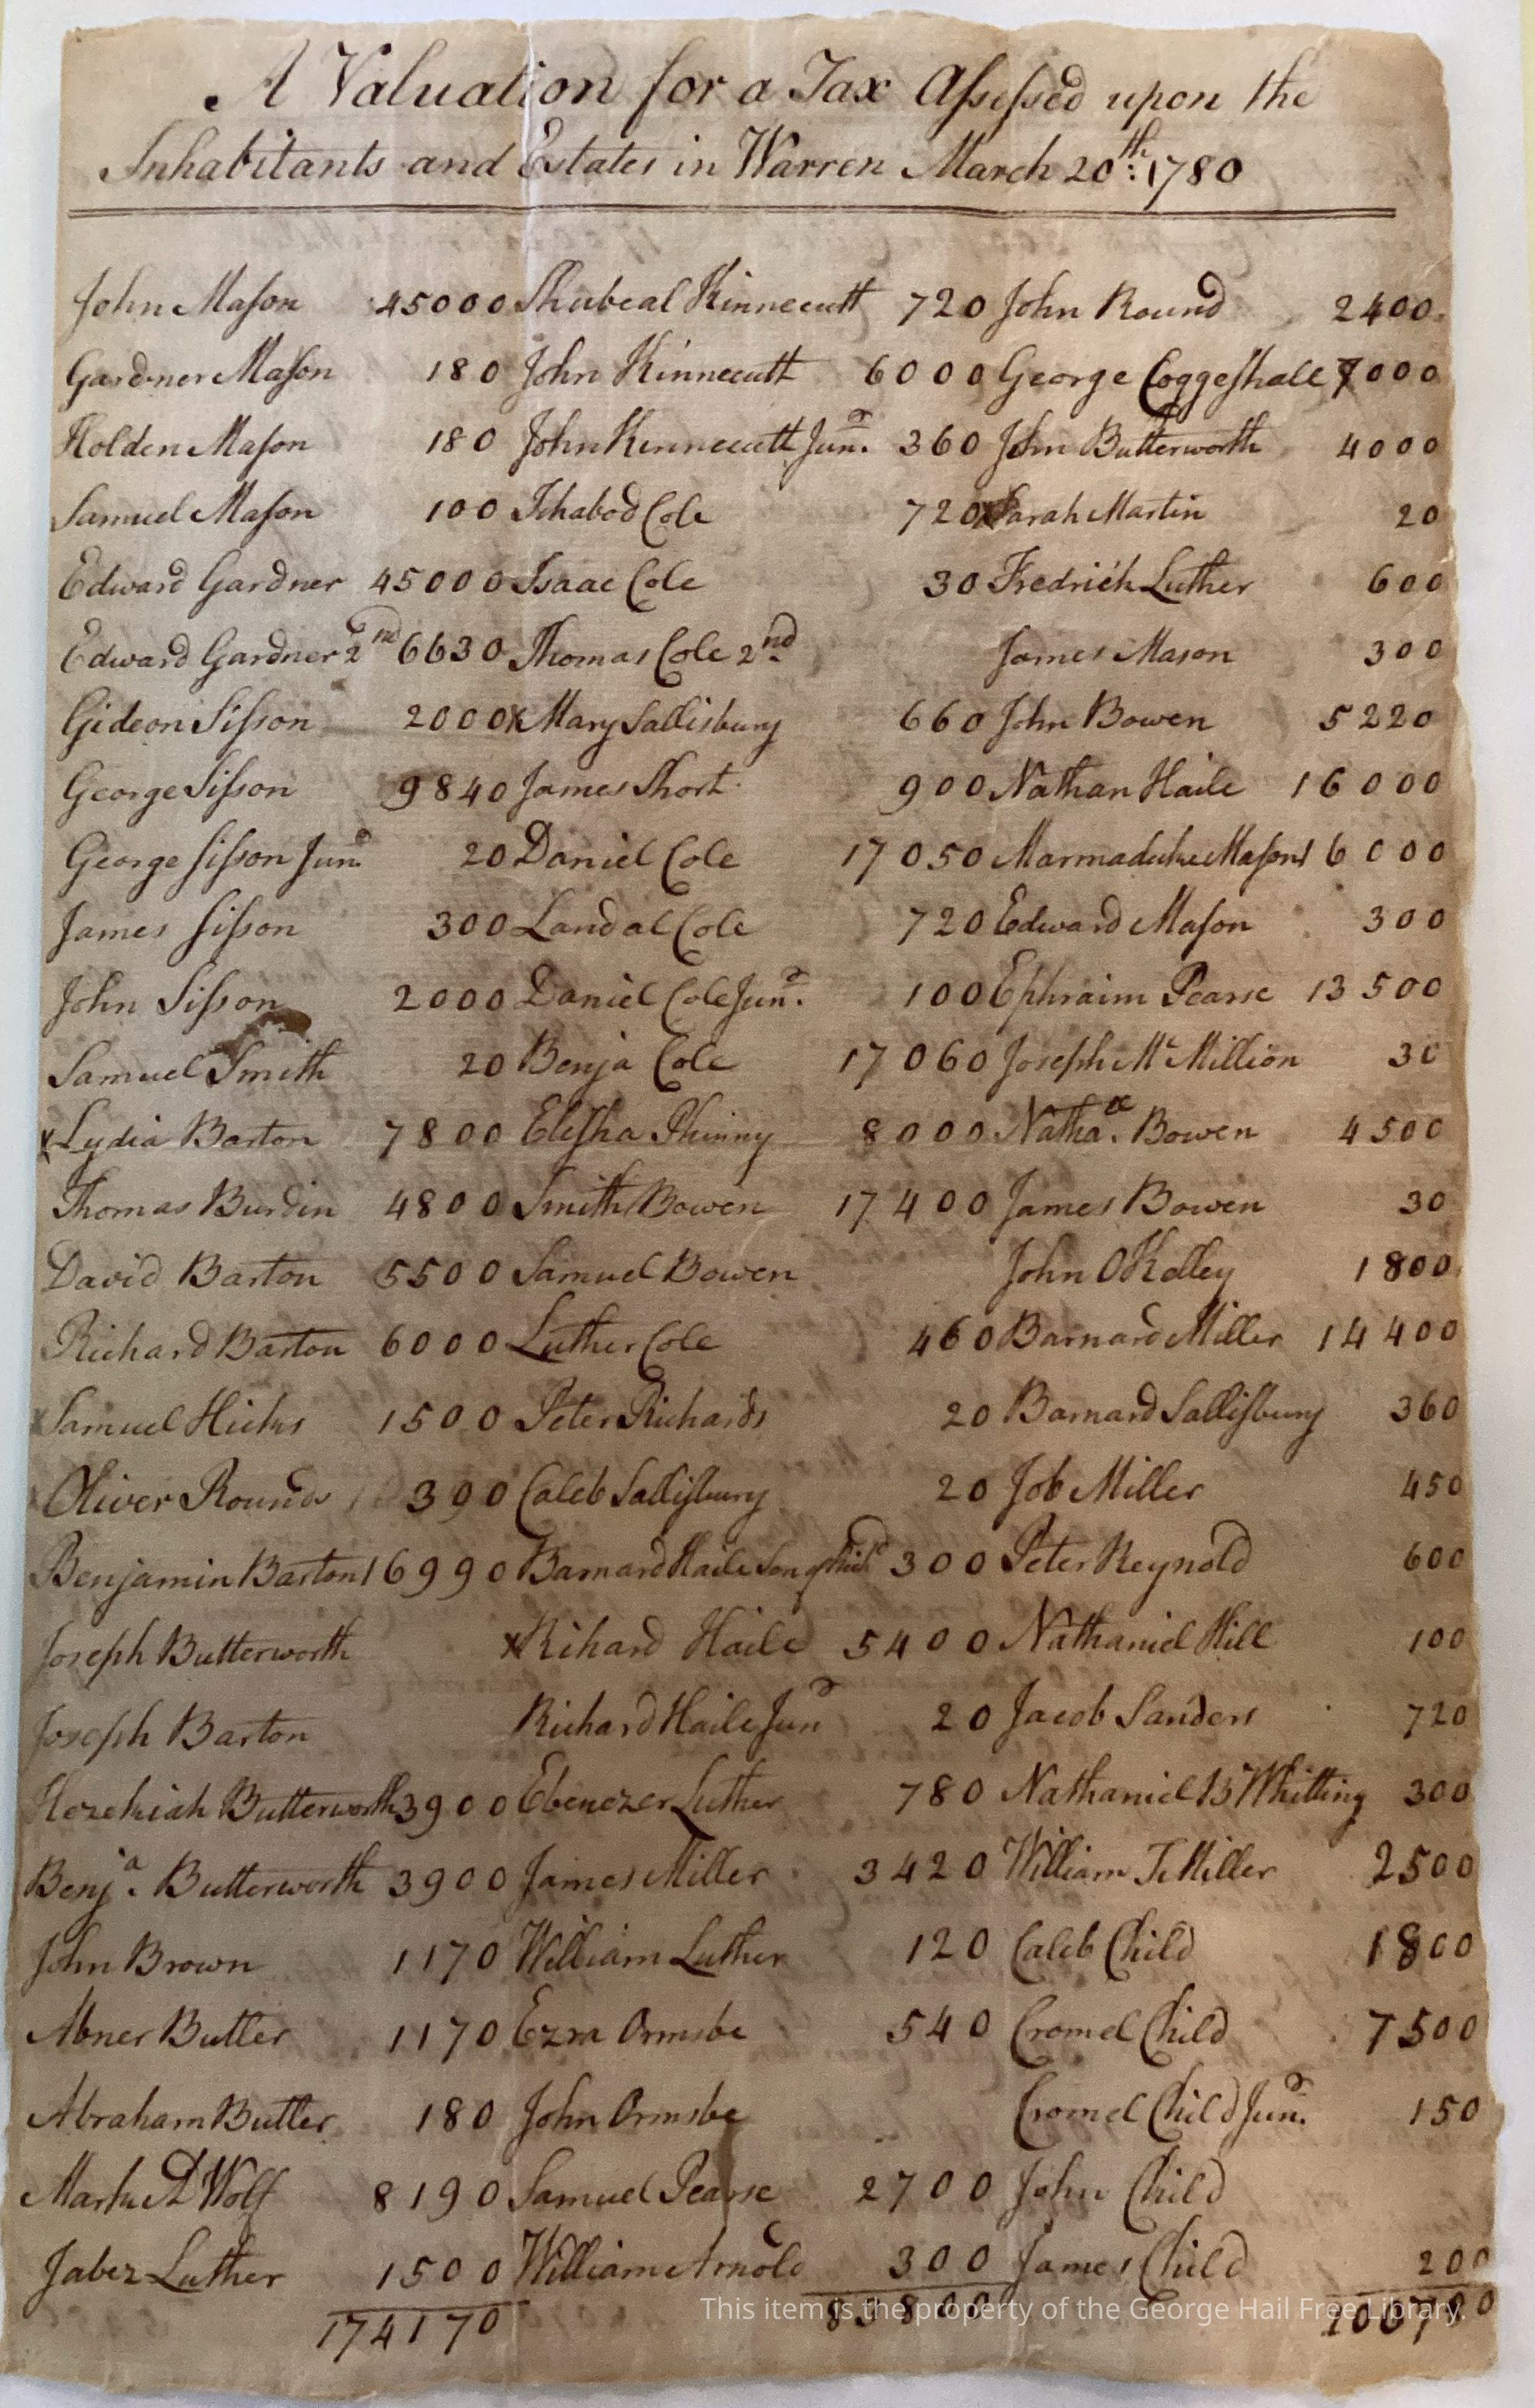 A Valuation for a Tax Assessed upon the
Inhabitants and Estates in Warren March 20th: 1780
John Mason 45000 Shubeal Kinnecutt 720 John Round 2400
Gardner Mason 180 John Kinnecutt 6000 George Coggeshall 7000
Holden Mason 180 John Kinnecutt Junr. 360 John Butterworth 4000
Samuel Mason 100 Ichabod Cole 720 x Sarah Martin 20
Edward Gardner 45000 Isaac Cole 30 Fredrick Luther 600
Edward Gardner 2nd 6630 Thomas Cole 2nd James Mason 300
Gideon Sisson 2000 x Mary Sallisbury 660 John Bowen 5220
George Sisson 9840 James Short 900 Nathan Haile 16000
George Sisson Junr 20 Daniel Cole 17050 Marmaduke Mason 16000
James Sisson 300 Landal Cole 720 Edward Mason 300
John Sisson 2000 Daniel Cole Junr. 100 Ephraim Pearse 13500
Samuel Smith 20 Benja Cole 17060 Joseph Mc Million 30
x Lydia Barton 7800 Elisha Phinny 8000 Natha. Bowen 4500
Thomas Burdin 4800 Smith Bowen 17400 James Bowen 30
David Barton 5500 Samuel Bowen John OKelley 1800
Richard Barton 6000 Luther Cole 460 Barnard Miller 14400
x Samuel Hicks 1500 Peter Richards 20 Barnard Sallisbury 360
Oliver Rounds 390 Caleb Sallisbury 20 Job Miller 450
Benjamin Barton 16990 Barnard Haile Son of Richd 300 Peter Reynold 600
Joseph Butterworth x Rihard Haile 5400 Nathaniel Hill 100
Joseph Barton Richard Haile Junr 20 Jacob Sanders 720
Hezekiah Butterworth 3900 Ebenezer Luther 780 Nathaniel B Whitting 300
Benja. Butterworth 3900 James Miller 3420 William T Miller 2500
John Brown 1170 William Luther 120 Caleb Child 1800
Abner Butler 1170 Ezra Ormsbe 540 Cromel Child 7500
Abraham Butler 180 John Ormsbe Cromel Child Junr. 150
Mark A D Wolf 8190 Samuel Pearse 2700 John Child
Jabez Luther 1500 William Arnold 300 James Child 200
174170 83800
This item is the property of the George Hail Free Library.